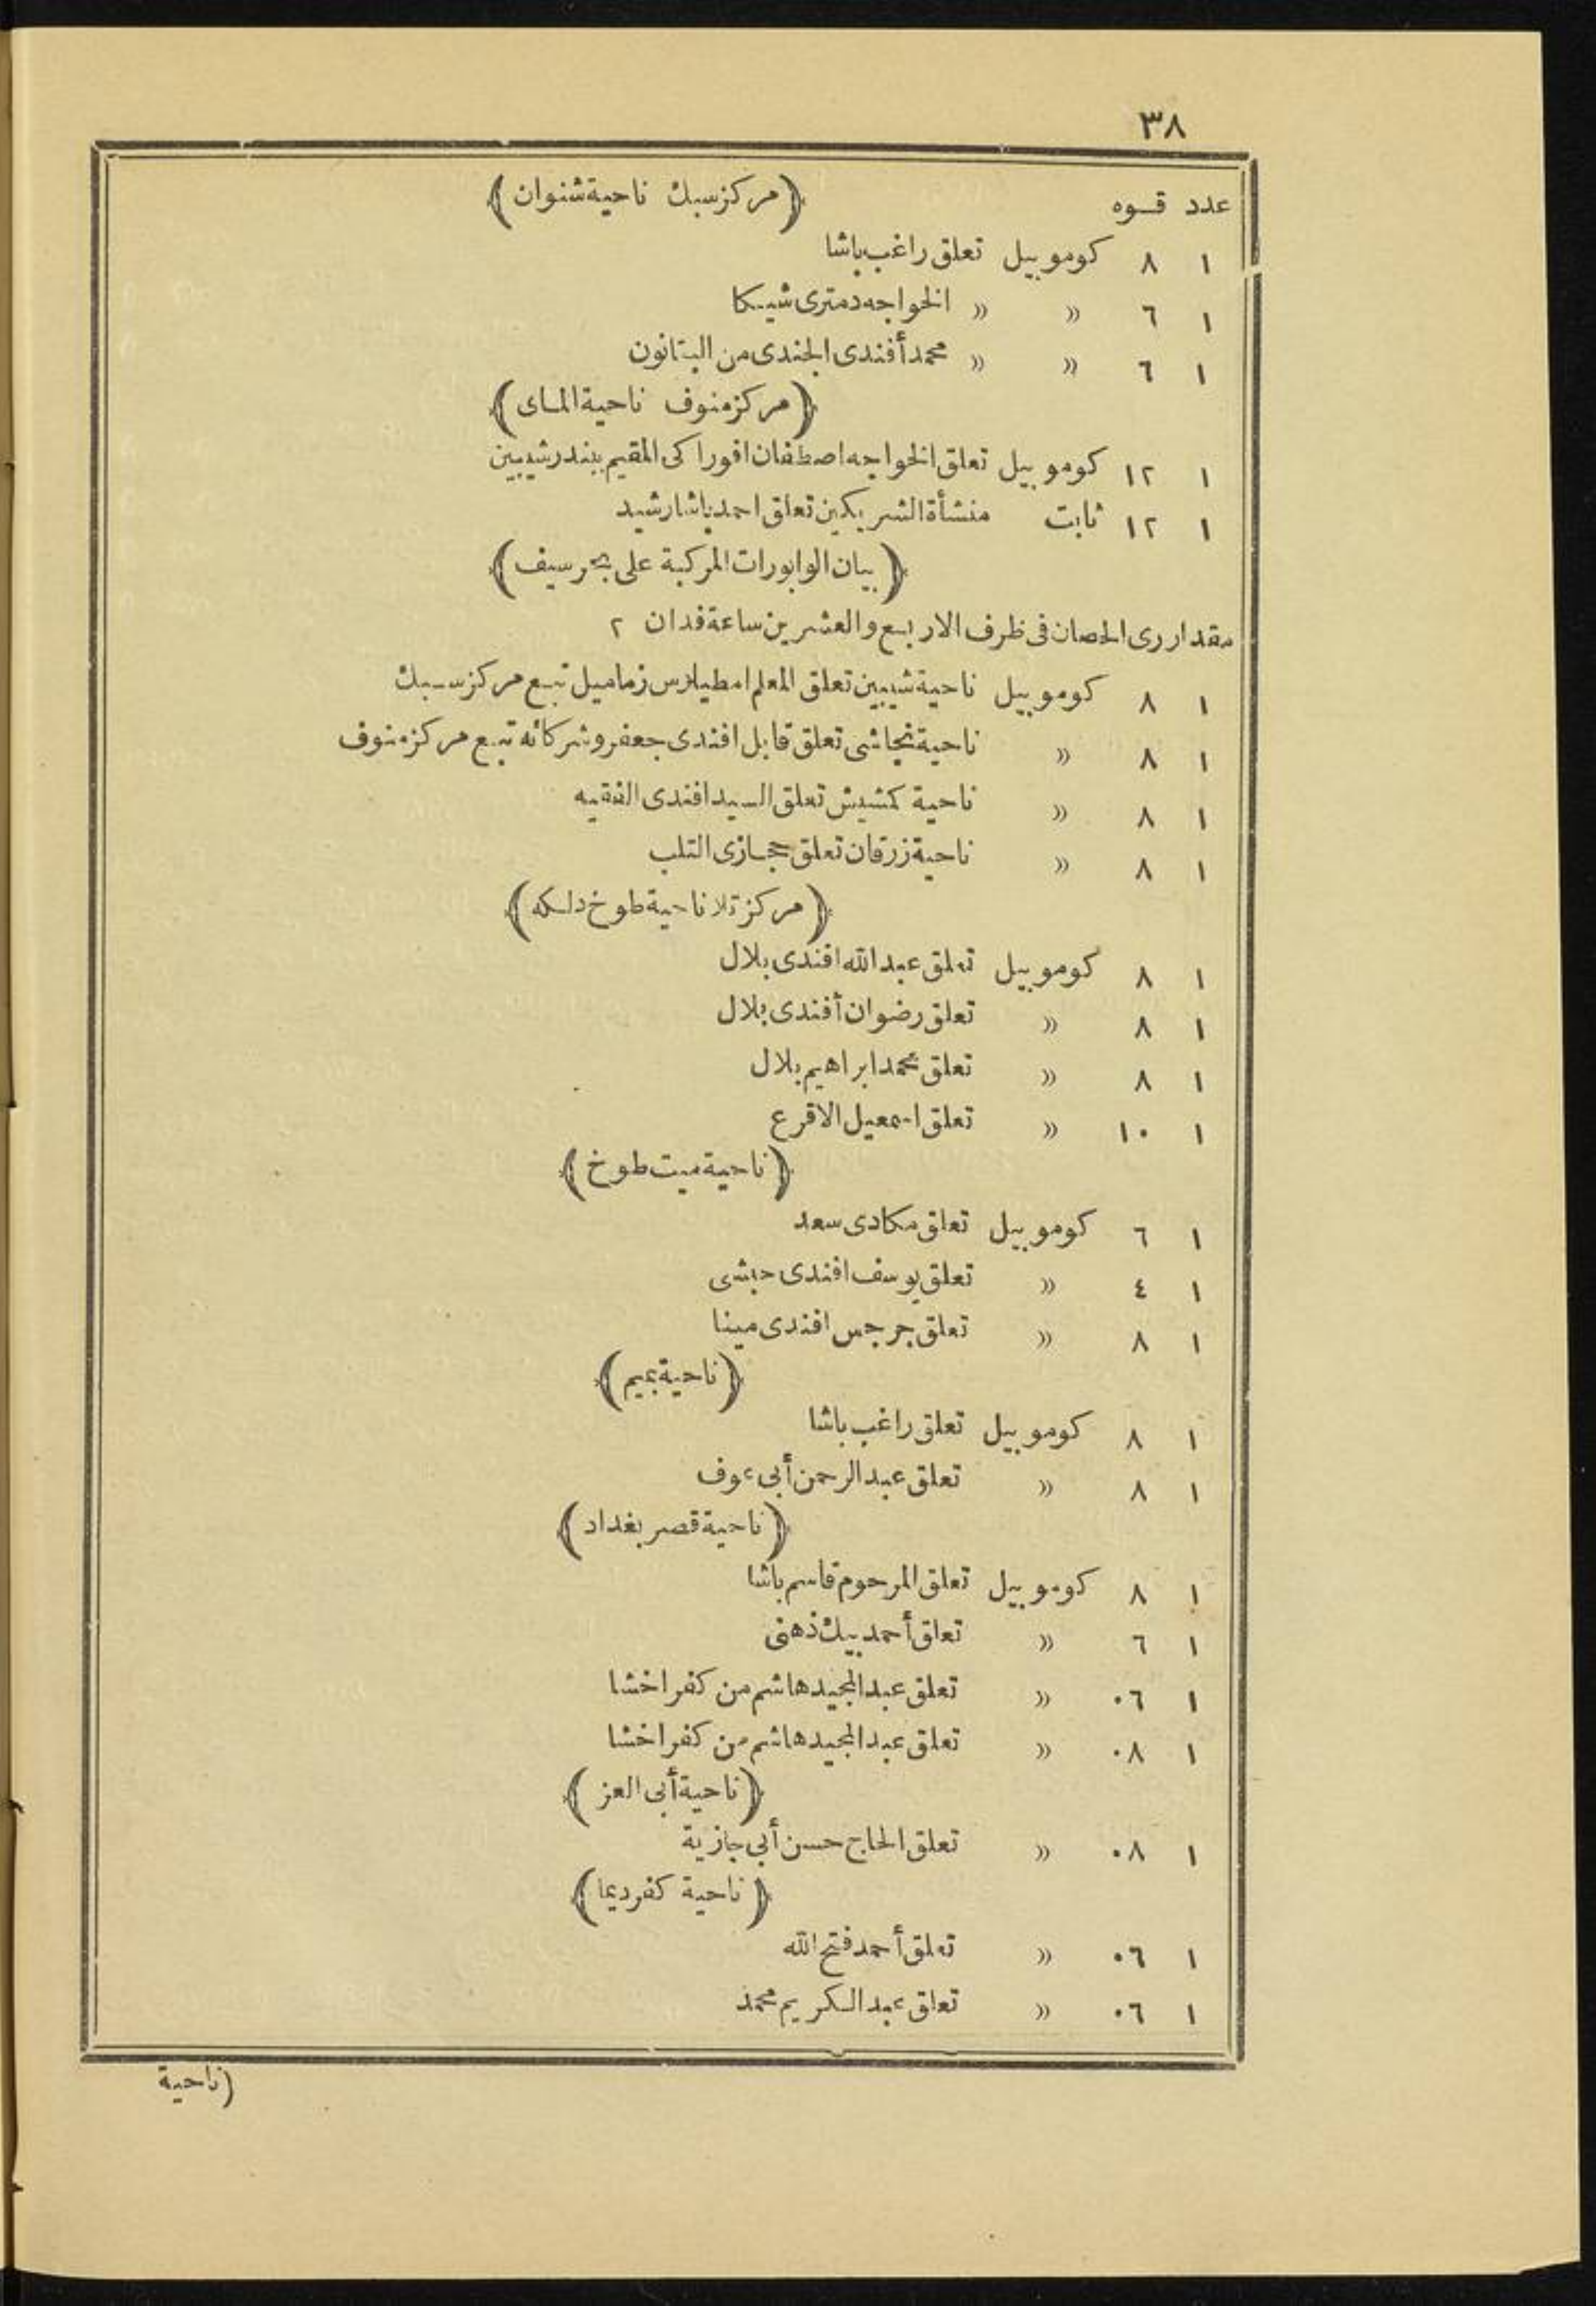 ٣٨
عدد قوه ﴿مركز سبك ناحية شنوان﴾
١ ٨ كوموبيل تعلق راغب باشا
١ ٦ » » الخواجه دمترى شيكا
١ ٦ » » محمد أفندى الجندى من البتانون
﴿مركز منوف ناحية الماى﴾
١ ١٢ كوموبيل تعلق الخواجه اصطفان افوراكى المقيم ببندر شيبين
١ ١٢ ثابت منشأة الشريكين تعلق احمد باشا رشيد
﴿بيان الوابورات المركبة على بحر سيف﴾
مقدار رى الحصان فى ظرف الاربع والعشرين ساعة فدان ٢
١ ٨ كوموبيل ناحية شيبين تعلق المعلم امطيلاوس زماميل تبع مركز سبك
١ ٨ » ناحية تجاشى تعلق قابل افندى جعفر وشركائه تبع مركز منوف
١ ٨ » ناحية كمشيش تعلق السيد افندى الفقيه
١ ٨ » ناحية زرقان تعلق حجازى التلب
﴿مركز تلا ناحية طوخ دلكه﴾
١ ٨ كوموبيل تعلق عبد الله افندى بلال
١ ٨ » تعلق رضوان أفندى بلال
١ ٨ » تعلق محمد ابراهيم بلال
١ ١٠ » تعلق اسمعيل الاقرع
﴿ناحية ميت طوخ﴾
١ ٦ كوموبيل تعلق مكادى سعد
١ ٤ » تعلق يوسف افندى حبشى
١ ٨ » تعلق جرجس افندى مينا
﴿ناحية بميم﴾
١ ٨ كوموبيل تعلق راغب باشا
١ ٨ » تعلق عبد الرحمن أبى عوف
﴿ناحية قصر بغداد﴾
١ ٨ كوموبيل تعلق المرحوم قاسم باشا
١ ٦ » تعلق أحمد بيك ذهنى
١ ٠٦ » تعلق عبد المجيد هاشم من كفر اخشا
١ ٠٨ » تعلق عبد المجيد هاشم من كفر اخشا
﴿ناحية أبى العز﴾
١ ٠٨ » تعلق الحاج حسن أبى جازية
﴿ناحية كفر ديما﴾
١ ٠٦ » تعلق أحمد فتح الله
١ ٠٦ » تعلق عبد الكريم محمد
(ناحية